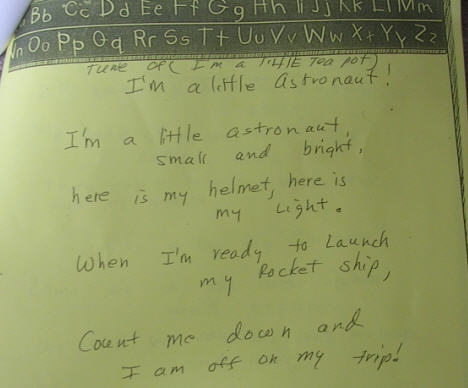 Bb Cc Dd Ee Ff Gg Hh Ii Jj Kk Ll Mm
Nn Oo Pp Qq Rr Ss Tt Uu Vv Ww Xx Yy Zz
Tune of( I'm a little Tea pot)
I'm a little astronaut!
I'm a little astronaut,
small and bright,
here is my helmet, here is
my Light.
When I'm ready to Launch
my Rocket ship,
Count me down and
I am off on my trip!